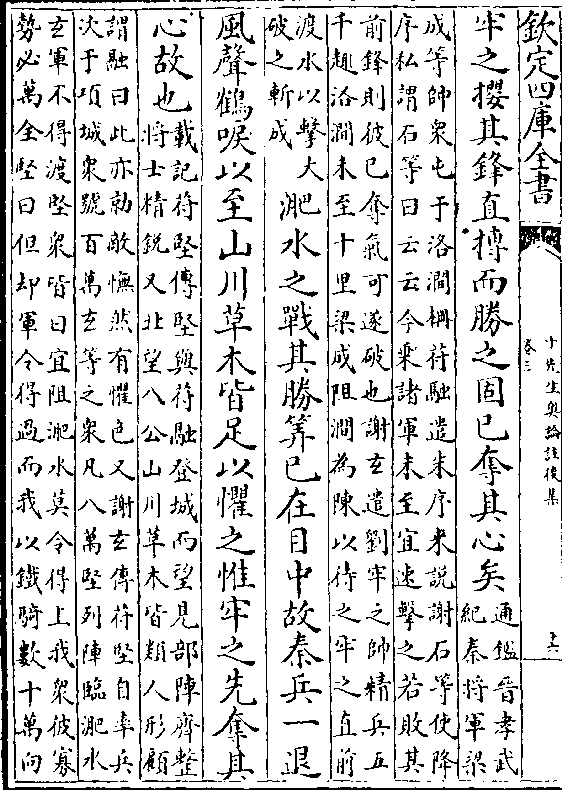 欽定四庫全書
十先生奧論註後集
卷三
十六
牢之攖其鋒直摶而勝之固已奪其心矣
通鑑晉孝武
紀秦將軍梁
成等帥衆屯于洛澗柵苻融遣朱序來說謝石等使降
序私謂石等曰云云今乗諸軍未至宜速擊之若敗其
前鋒則彼已奪氣可遂破也謝玄遣劉牢之帥精兵五
千趨洛澗未至十里梁成阻澗為陳以待之牢之直前
渡水以擊大
破之斬成
淝水之戰其勝筭已在目中故秦兵一退
風聲鶴唳以至山川草木皆足以懼之惟牢之先奪其
心故也
載記苻堅傳堅與苻融登城而望見部陣齊整
將士精銳又北望八公山川草木皆類人形顧
謂融曰此亦勍敵憮然有懼色又謝玄傳苻堅自率兵
次于項城衆號百萬玄等之衆凡八萬堅列陣臨淝水
玄軍不得渡堅衆皆曰宜阻淝水莫令得上我衆彼寡
勢必萬全堅曰但却軍令得過而我以鐵騎數十萬向